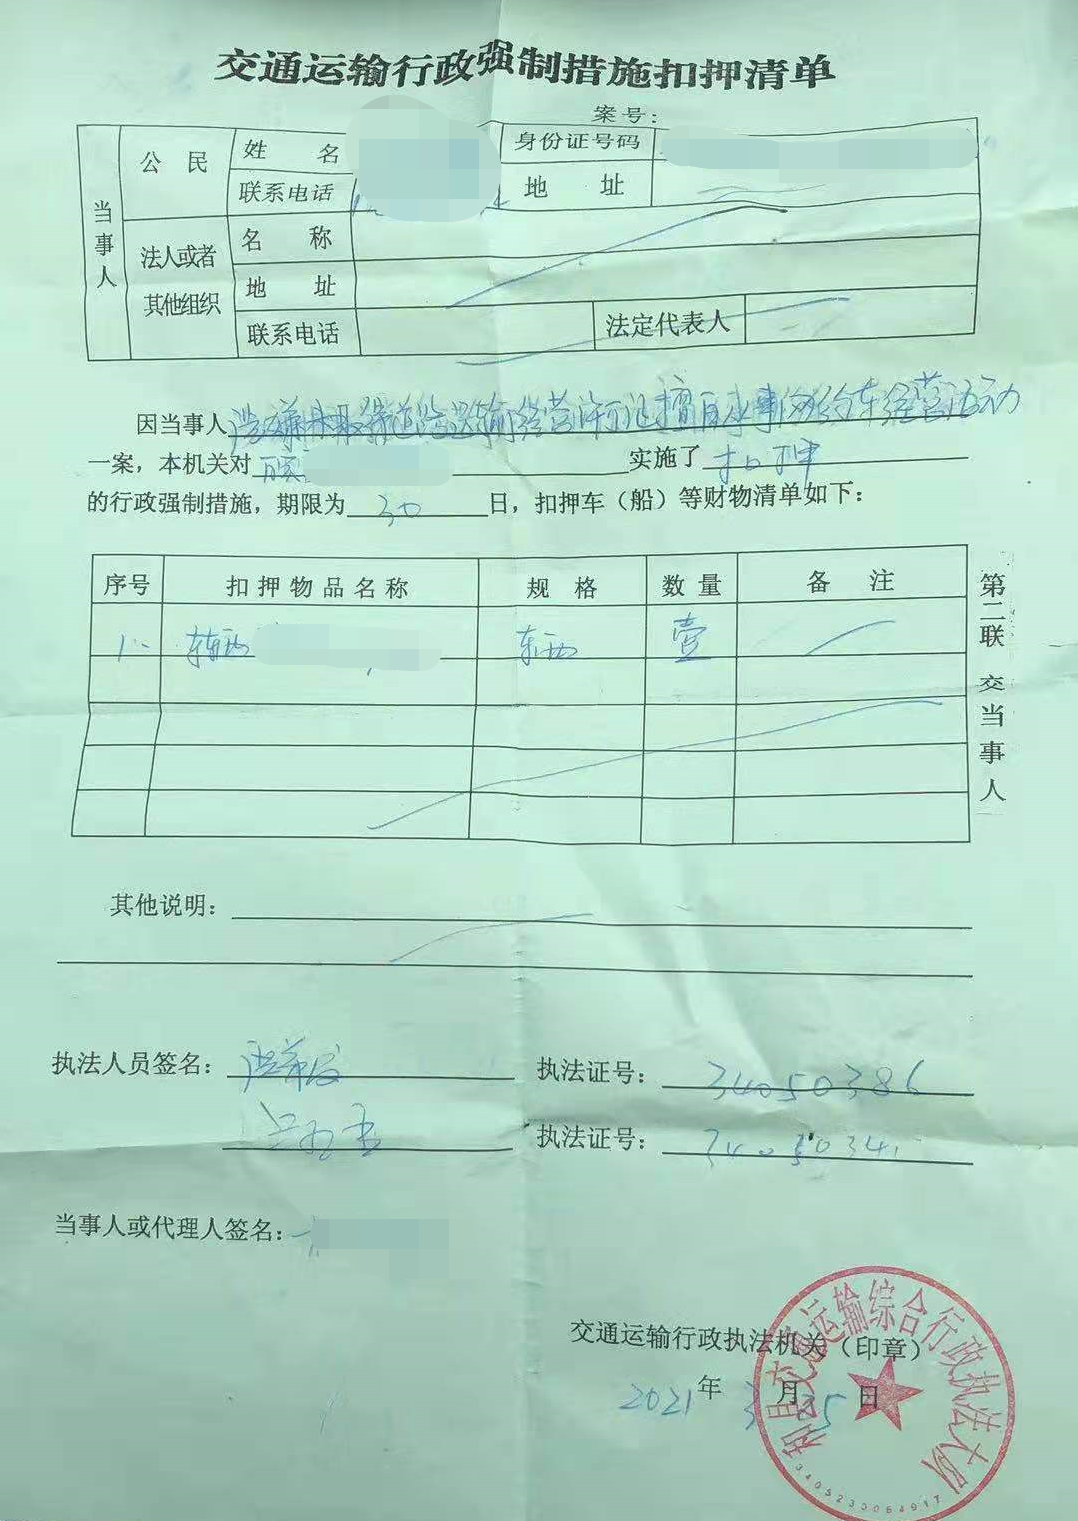 交通运输行政强制措施扣押清单
案号:
当事人
公民
姓名
身份证号码
联系电话
地址
法人或者其他组织
名称
地址
联系电话
法定代表人
因当事人涉嫌未取得道路运输经营许可证擅自从事网约车经营活动
一案，本机关对 实施了 扣押
的行政强制措施，期限为 30 日，扣押车（船）等财物清单如下：
序号 扣押物品名称 规格 数量 备注
1、 车辆 车辆 壹
第二联 交当事人
其他说明：
执法人员签名： 执法证号： 34050386
执法证号：
当事人或代理人签名：
交通运输行政执法机关（印章）
2021年3月25日
和县交通运输综合行政执法大队
3405233064917